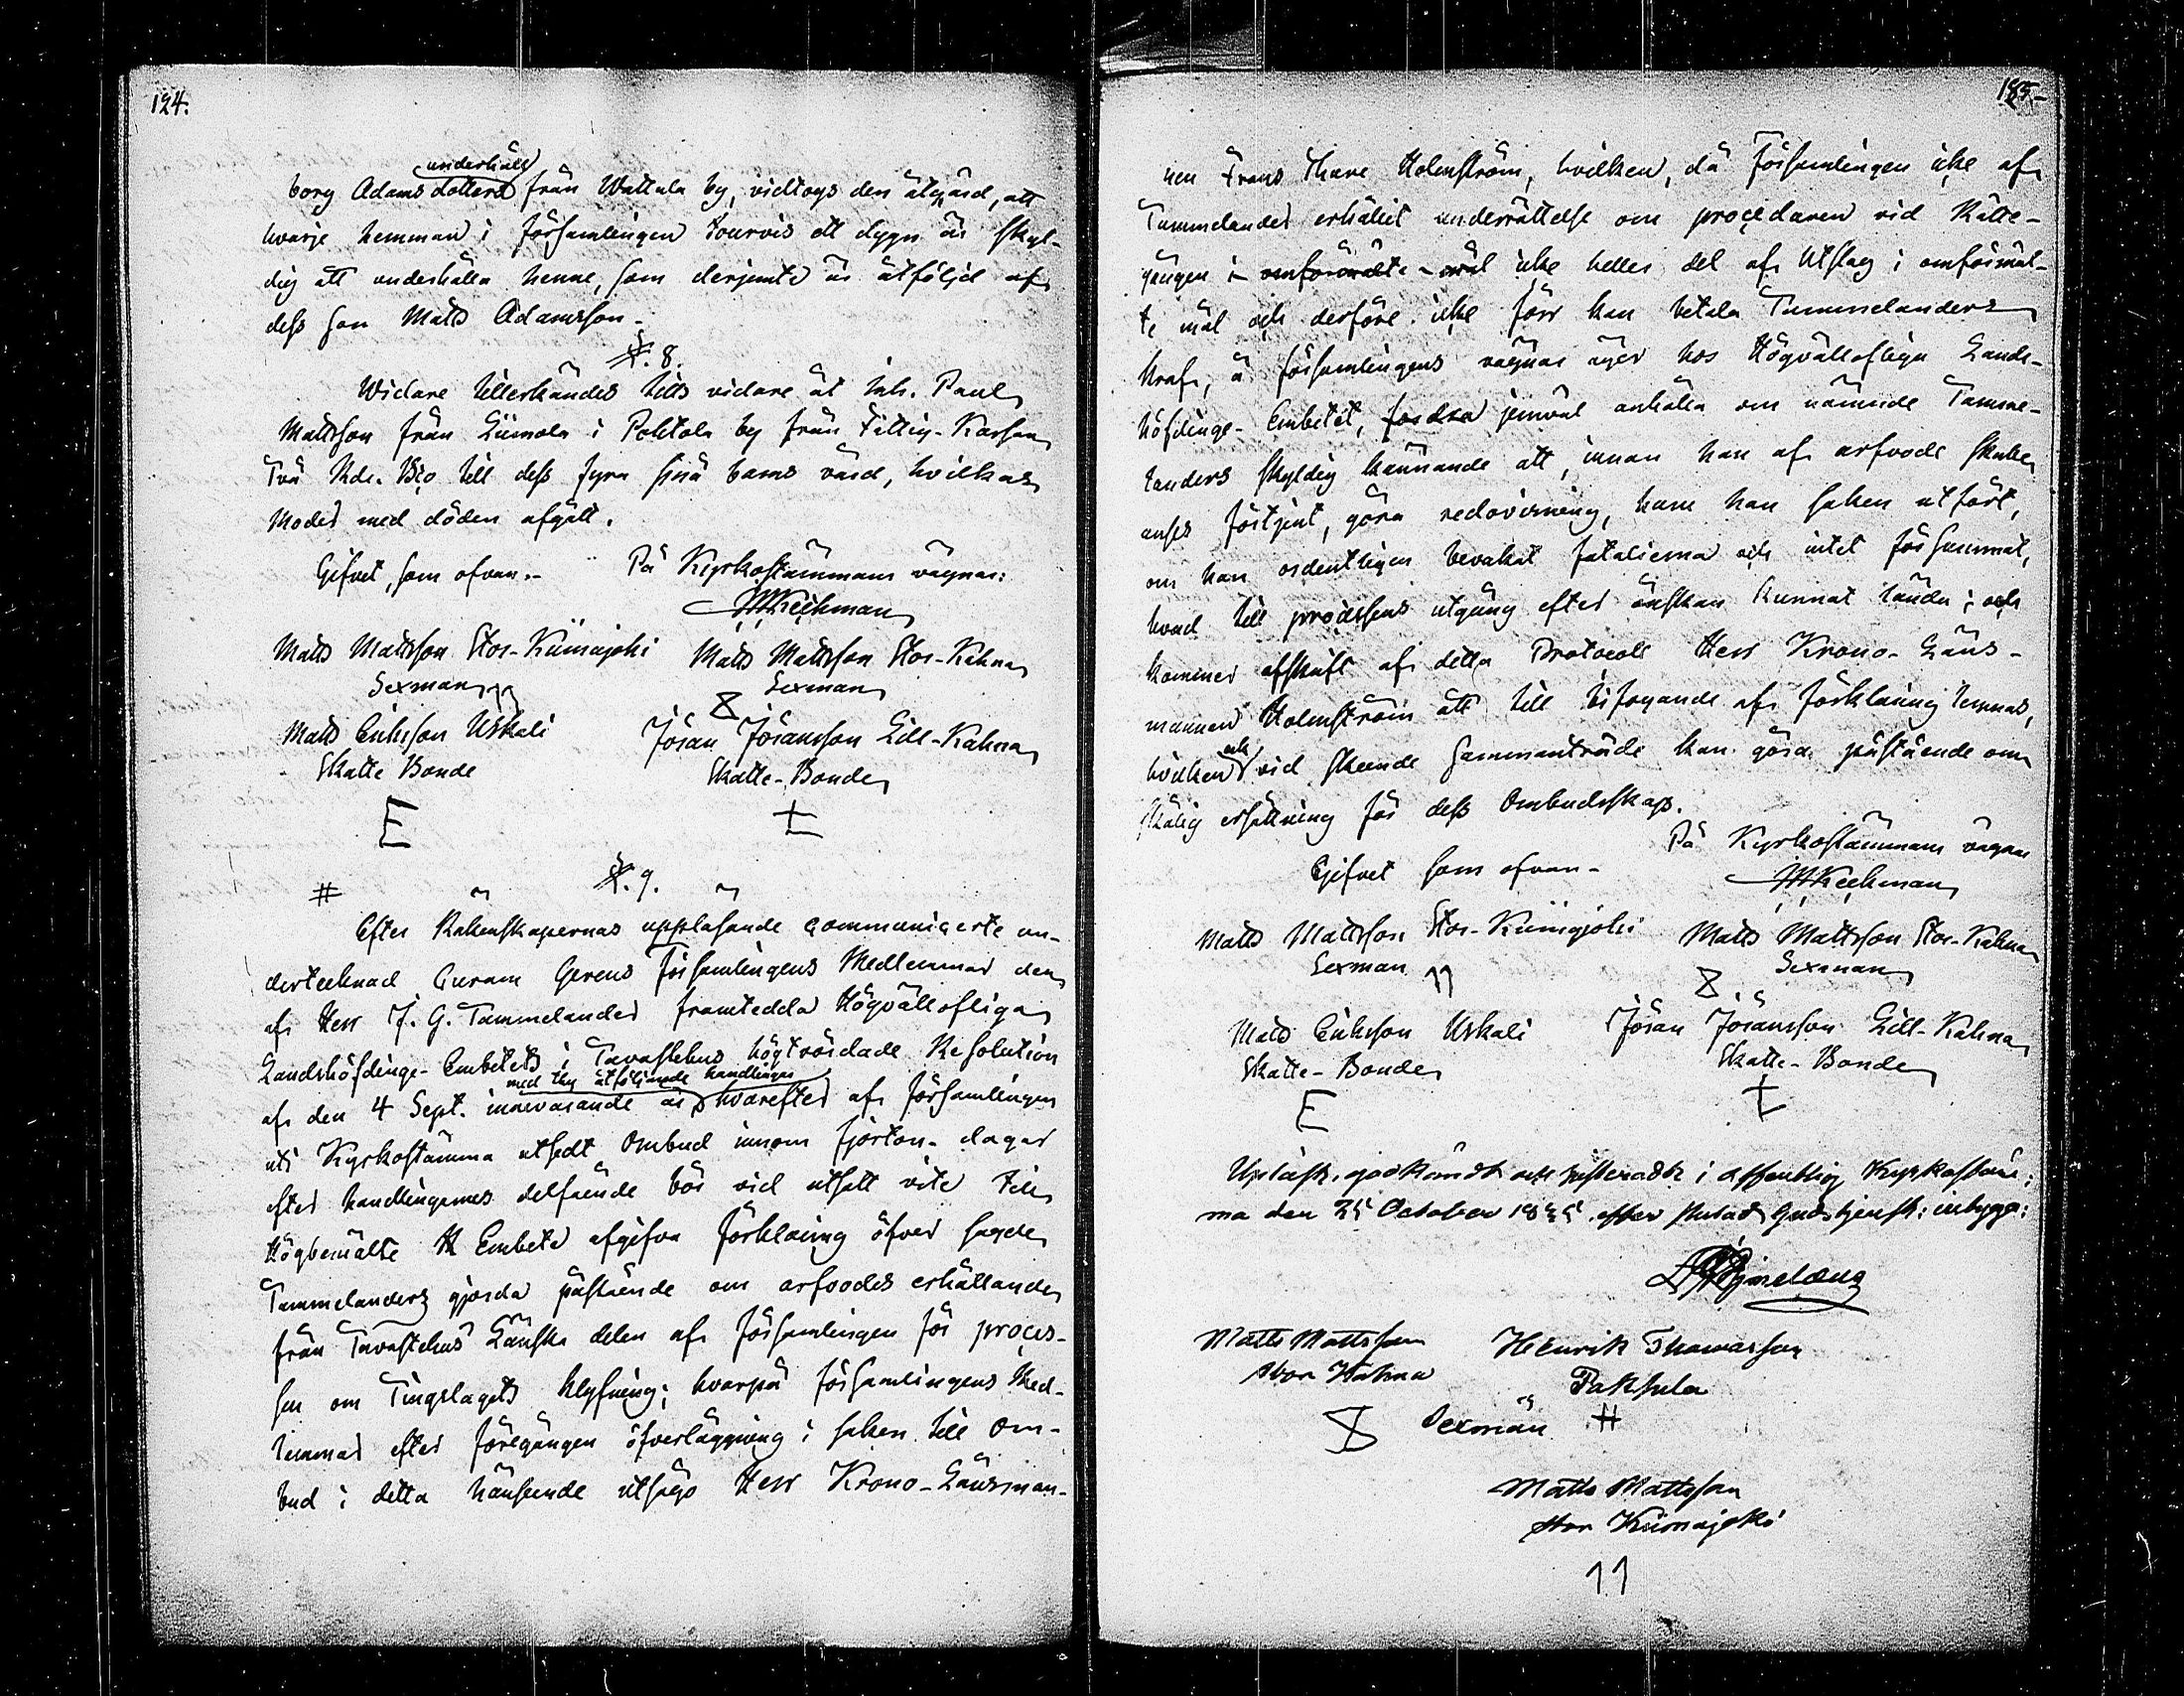 124.
underhåll
borg Adams dotters från Wattula by, vidtogs den åtgärd, att
hvarje hemman i församlingen tourvis ett dygn är skyl-
dig att underhålla henne, som derjemte är åtföljd af
dess son Matts Adamsson.
§. 8.
Widare tillerkändes tills vidare åt Inh. Paul
Mattsson från Liimola i Pohtola by från Fattig-Kassan
Två Rdr. Bco till dess fyra små barns vård, hvilkas
Moder med döden afgått.
Gifvet, som ofvan.- På Kyrkostämmans vägnar:
Matts Mattsson Stor-Kiimajoki Matts Mattsson Stor-Kahna
Sexman 11 Sexman
8
Matts Eriksson Uskali Jöran Jöransson Lill-Kahna
Skatte Bonde Skatte-Bonde
E
§. 9.
#
Efter Räkenskapernas uppläsande communicerte un-
dertecknad Curam Gerens Församlingens Medlemmar den
af Herr J. G. Tammelander framtedda Högvällofliga
Landshöfdinge-Embetets i Tavastehus högtvördade Resolution
med thy åtföljande handlingar
af den 4 Sept. innevarande år, hvarefter af församlingen
uti Kyrkostämma utsedt Ombud innom fjorton dagar
efter handlingarnes delfående bör vid utsatt vite till
Högbemälte Embete afgifva förklaring öfver sagde
Tammelanders gjorda påstående om arfvodes erhållande
från Tavastehus Länska delen af församlingen för proces-
sen om Tingslagets klyfning; hvarpå församlingens Med-
lemmar efter föregången öfverläggning i saken till Om-
bud i detta hänseende utsågo Herr Krono-Länsman-
125.
nen Frans Thure Holmström, hvilken, då Församlingen icke af
Tammelander erhållit underrättelse om proceduren vid Rätte-
gången i omförmälte mål icke heller del af Utslag i omförmäl-
te mål och derföre icke förr kan betala Tammelanders
kraf, å församlingens vägnar äger hos Högvällofliga Lands-
höfdinge-Embetet, fordra jemväl anhålla om nämnde Tamme-
landers skyldig kännande att, innan han af arfvode skulle
anses förtjent, göra redovisning, huru han saken utfört,
om han ordentligen bevakat fatalierna och intet försummat,
hvad till processens utgång efter önskan kunnat lända; och
kommer afskrift af detta Protocoll Herr Krono-Läns-
mannen Holmström att till bifogande af förklaring lemnas,
och
hvilken vid skeende sammanträde kan göra påstående om
skälig ersättning för dess Ombudsskap.
Gifvet som ofvan- På Kyrkostämmans vägnar
Matts Mattsson Stor-Kiimajoki Matts Mattsson Stor-Kahna
Sexman 11 Sexman
8
Matts Eriksson Uskali Jöran Jöransson Lill-Kahna
Skatte-Bonde Skatte-Bonde
E
Upläst, godkändt och justeradt i offentlig Kyrkostäm-
ma den 25 October 1835 efter slutad Gudstjenst: intyga:
Matts Mattsson Henrik Thomasson
Stor Kahna Paksula
8 Sexmän #
Matts Mattsson
Stor Kiimajoki
11